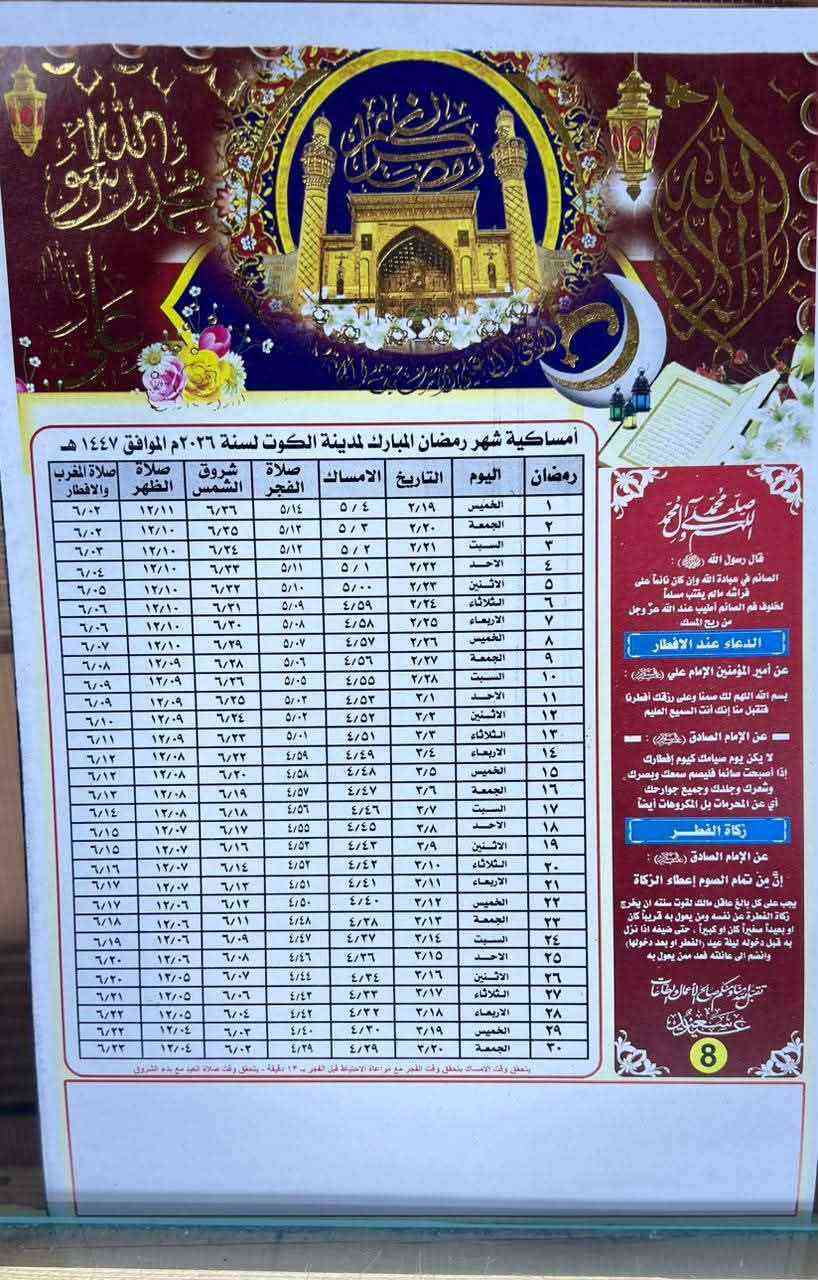 الله
محمد رسول
علي
رمضان كريم
أمساكية شهر رمضان المبارك لمدينة الكوت لسنة ٢٠٢٦م الموافق ١٤٤٧ هـ
رمضان اليوم التاريخ الامساك صلاة الفجر شروق الشمس صلاة الظهر صلاة المغرب والافطار
١ الخميس ٢/١٩ ٥/٠٤ ٥/١٤ ٦/٣٦ ١٢/١١ ٦/٠٢
٢ الجمعة ٢/٢٠ ٥/٠٣ ٥/١٣ ٦/٣٥ ١٢/١٠ ٦/٠٢
٣ السبت ٢/٢١ ٥/٠٢ ٥/١٢ ٦/٣٤ ١٢/١٠ ٦/٠٣
٤ الاحد ٢/٢٢ ٥/٠١ ٥/١١ ٦/٣٣ ١٢/١٠ ٦/٠٤
٥ الاثنين ٢/٢٣ ٥/٠٠ ٥/١٠ ٦/٣٢ ١٢/١٠ ٦/٠٥
٦ الثلاثاء ٢/٢٤ ٤/٥٩ ٥/٠٩ ٦/٣١ ١٢/١٠ ٦/٠٦
٧ الاربعاء ٢/٢٥ ٤/٥٨ ٥/٠٨ ٦/٣٠ ١٢/١٠ ٦/٠٦
٨ الخميس ٢/٢٦ ٤/٥٧ ٥/٠٧ ٦/٢٩ ١٢/١٠ ٦/٠٧
٩ الجمعة ٢/٢٧ ٤/٥٦ ٥/٠٦ ٦/٢٨ ١٢/٠٩ ٦/٠٨
١٠ السبت ٢/٢٨ ٤/٥٥ ٥/٠٥ ٦/٢٦ ١٢/٠٩ ٦/٠٩
١١ الاحد ٣/١ ٤/٥٣ ٥/٠٣ ٦/٢٥ ١٢/٠٩ ٦/٠٩
١٢ الاثنين ٣/٢ ٤/٥٢ ٥/٠٢ ٦/٢٤ ١٢/٠٩ ٦/١٠
١٣ الثلاثاء ٣/٣ ٤/٥١ ٥/٠١ ٦/٢٣ ١٢/٠٩ ٦/١١
١٤ الاربعاء ٣/٤ ٤/٤٩ ٤/٥٩ ٦/٢٢ ١٢/٠٨ ٦/١٢
١٥ الخميس ٣/٥ ٤/٤٨ ٤/٥٨ ٦/٢٠ ١٢/٠٨ ٦/١٢
١٦ الجمعة ٣/٦ ٤/٤٧ ٤/٥٧ ٦/١٩ ١٢/٠٨ ٦/١٣
١٧ السبت ٣/٧ ٤/٤٦ ٤/٥٦ ٦/١٨ ١٢/٠٨ ٦/١٤
١٨ الاحد ٣/٨ ٤/٤٥ ٤/٥٥ ٦/١٧ ١٢/٠٧ ٦/١٥
١٩ الاثنين ٣/٩ ٤/٤٣ ٤/٥٣ ٦/١٦ ١٢/٠٧ ٦/١٥
٢٠ الثلاثاء ٣/١٠ ٤/٤٢ ٤/٥٢ ٦/١٤ ١٢/٠٧ ٦/١٦
٢١ الاربعاء ٣/١١ ٤/٤١ ٤/٥١ ٦/١٣ ١٢/٠٧ ٦/١٧
٢٢ الخميس ٣/١٢ ٤/٤٠ ٤/٥٠ ٦/١٢ ١٢/٠٦ ٦/١٧
٢٣ الجمعة ٣/١٣ ٤/٣٨ ٤/٤٨ ٦/١١ ١٢/٠٦ ٦/١٨
٢٤ السبت ٣/١٤ ٤/٣٧ ٤/٤٧ ٦/٠٩ ١٢/٠٦ ٦/١٩
٢٥ الاحد ٣/١٥ ٤/٣٦ ٤/٤٦ ٦/٠٨ ١٢/٠٦ ٦/٢٠
٢٦ الاثنين ٣/١٦ ٤/٣٤ ٤/٤٤ ٦/٠٧ ١٢/٠٥ ٦/٢٠
٢٧ الثلاثاء ٣/١٧ ٤/٣٣ ٤/٤٣ ٦/٠٦ ١٢/٠٥ ٦/٢١
٢٨ الاربعاء ٣/١٨ ٤/٣٢ ٤/٤٢ ٦/٠٤ ١٢/٠٥ ٦/٢٢
٢٩ الخميس ٣/١٩ ٤/٣٠ ٤/٤٠ ٦/٠٣ ١٢/٠٤ ٦/٢٢
٣٠ الجمعة ٣/٢٠ ٤/٢٩ ٤/٣٩ ٦/٠٢ ١٢/٠٤ ٦/٢٣
يتحقق وقت الامساك بتحقق وقت الفجر مع مراعاة الاحتياط قبل الفجر بـ ١٣ دقيقة - يتحقق وقت صلاة العيد مع بدء الشروق
اللهم صل على محمد وآل محمد
قال رسول الله :
الصائم في عبادة الله وإن كان نائماً على
فراشه مالم يغتب مسلماً
لخلوف فم الصائم أطيب عند الله عزّ وجل
من ريح المسك
الدعاء عند الافطار
عن أمير المؤمنين الإمام علي :
بسم الله اللهم لك صمنا وعلى رزقك أفطرنا
فتقبل منا إنك أنت السميع العليم
عن الإمام الصادق :
لا يكن يوم صيامك كيوم إفطارك
إذا أصبحت صائماً فليصم سمعك وبصرك
وشعرك وجلدك وجميع جوارحك
أي عن المحرمات بل المكروهات أيضاً
زكاة الفطر
عن الإمام الصادق :
إنّ مِن تمام الصوم إعطاء الزكاة
يجب على كل بالغ عاقل مالك لقوت سنته ان يخرج
زكاة الفطرة عن نفسه ومن يعول به قريباً كان
او بعيداً صغيراً كان او كبيراً ، حتى ضيفه اذا نزل
به قبل دخوله ليلة عيد (الفطر او بعد دخولها)
وانضم الى عائلته فعد ممن يعول به
تقبل الله منا ومنكم صالح الأعمال والطاعات
8